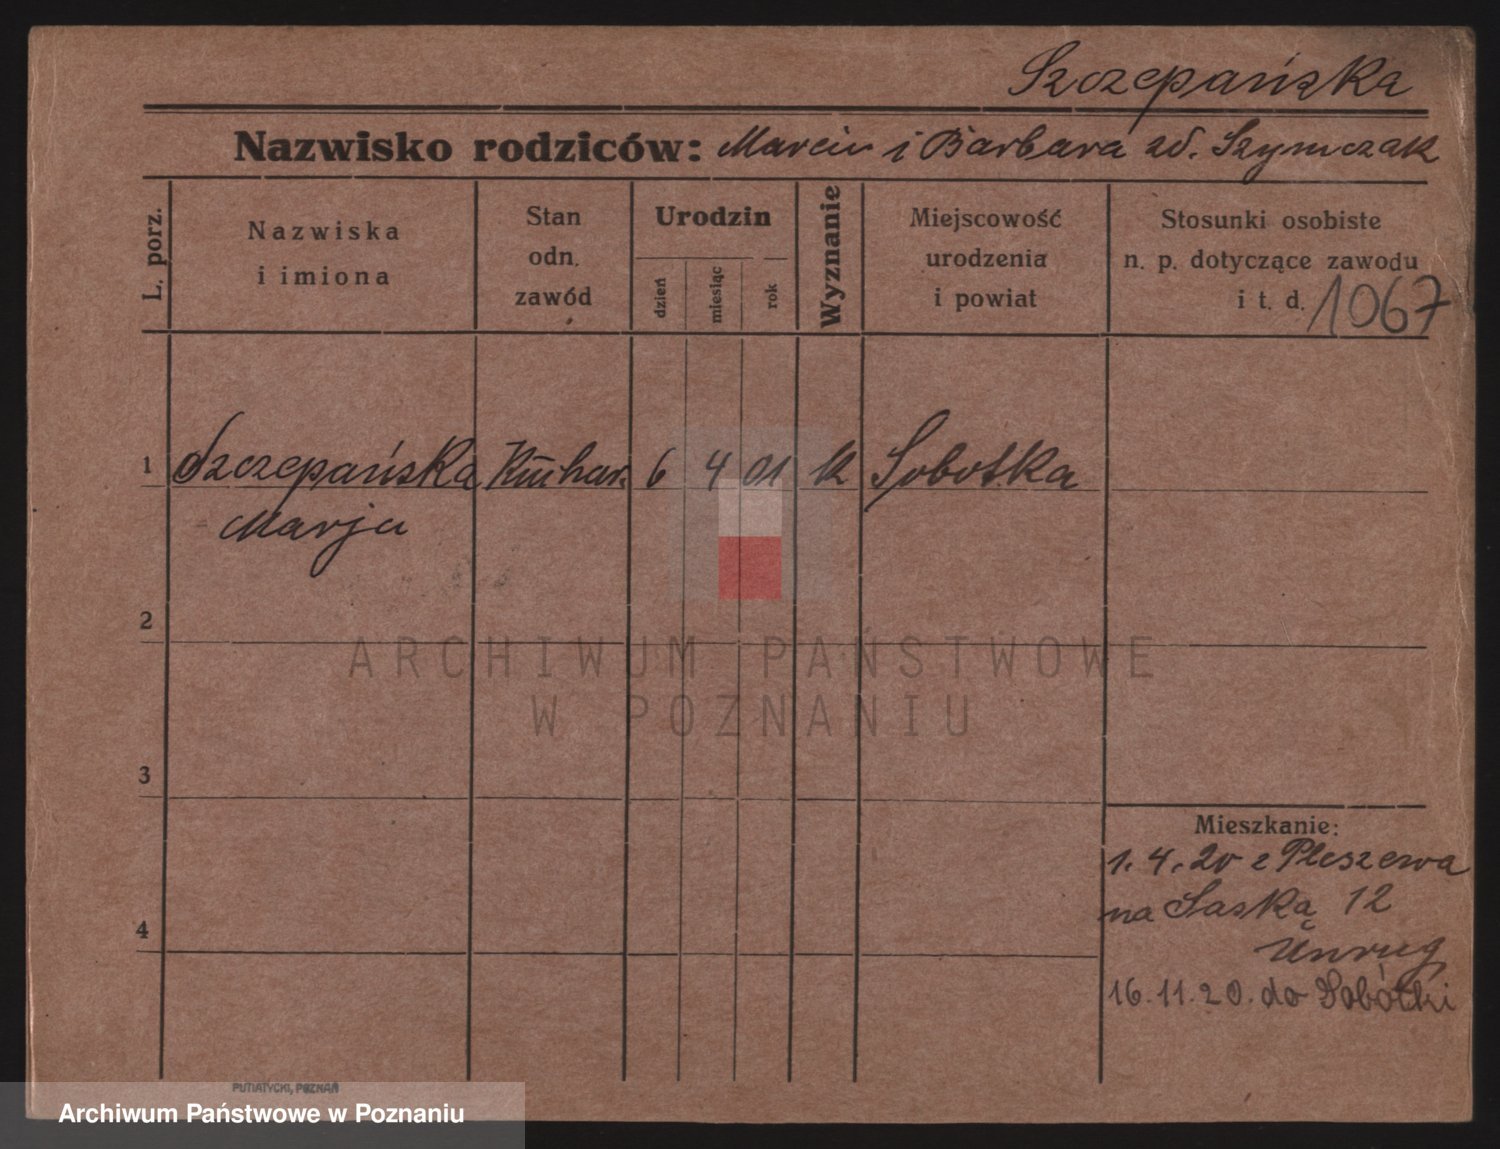 Szczepańska
Nazwisko rodziców: Marcin i Barbara zd. Szymczak
L. porz.
Nazwiska
i imiona
Stan
odn.
zawód
Urodzin
dzień
miesiąc
rok
Wyznanie
Miejscowość
urodzenia
i powiat
Stosunki osobiste
n. p. dotyczące zawodu
i t. d. 1067
1 Szczepańska Kuchar. 6 4 01 k Sobotka
Marja
2
3
4
Mieszkanie:
1.4.20 z Pleszewa
na Łaską 12
Unrug
16.11.20. do Sobótki
ARCHIWUM PAŃSTWOWE
W POZNANIU
PUTIATYCKI, POZNAŃ
Archiwum Państwowe w Poznaniu